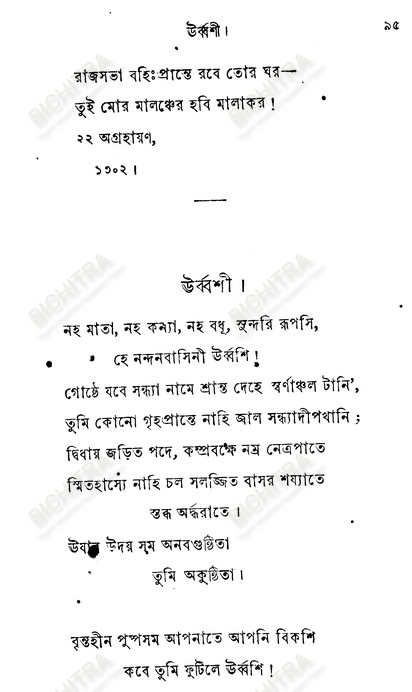 উর্ব্বশী।
৯৫
রাজসভা বহিঃপ্রান্তে রবে তোর ঘর—
তুই মোর মালঞ্চের হবি মালাকর!
২২ অগ্রহায়ণ,
১৩০২।
উর্ব্বশী।
নহ মাতা, নহ কন্যা, নহ বধূ, সুন্দরি রূপসি,
হে নন্দনবাসিনী উর্ব্বশি!
গোষ্ঠে যবে সন্ধ্যা নামে শ্রান্ত দেহে স্বর্ণাঞ্চল টানি’,
তুমি কোনো গৃহপ্রান্তে নাহি জাল সন্ধ্যাদীপখানি;
দ্বিধায় জড়িত পদে, কম্প্রবক্ষে নম্র নেত্রপাতে
স্মিতহাস্যে নাহি চল সলজ্জিত বাসর শয্যাতে
স্তব্ধ অর্দ্ধরাতে।
ঊষার উদয় সম অনবগুণ্ঠিতা
তুমি অকুণ্ঠিতা।
বৃন্তহীন পুষ্পসম আপনাতে আপনি বিকশি
কবে তুমি ফুটিলে উর্ব্বশি!
BICHITRA
BICHITRA
BICHITRA
BICHITRA
BICHITRA
BICHITRA
BICHITRA
BICHITRA